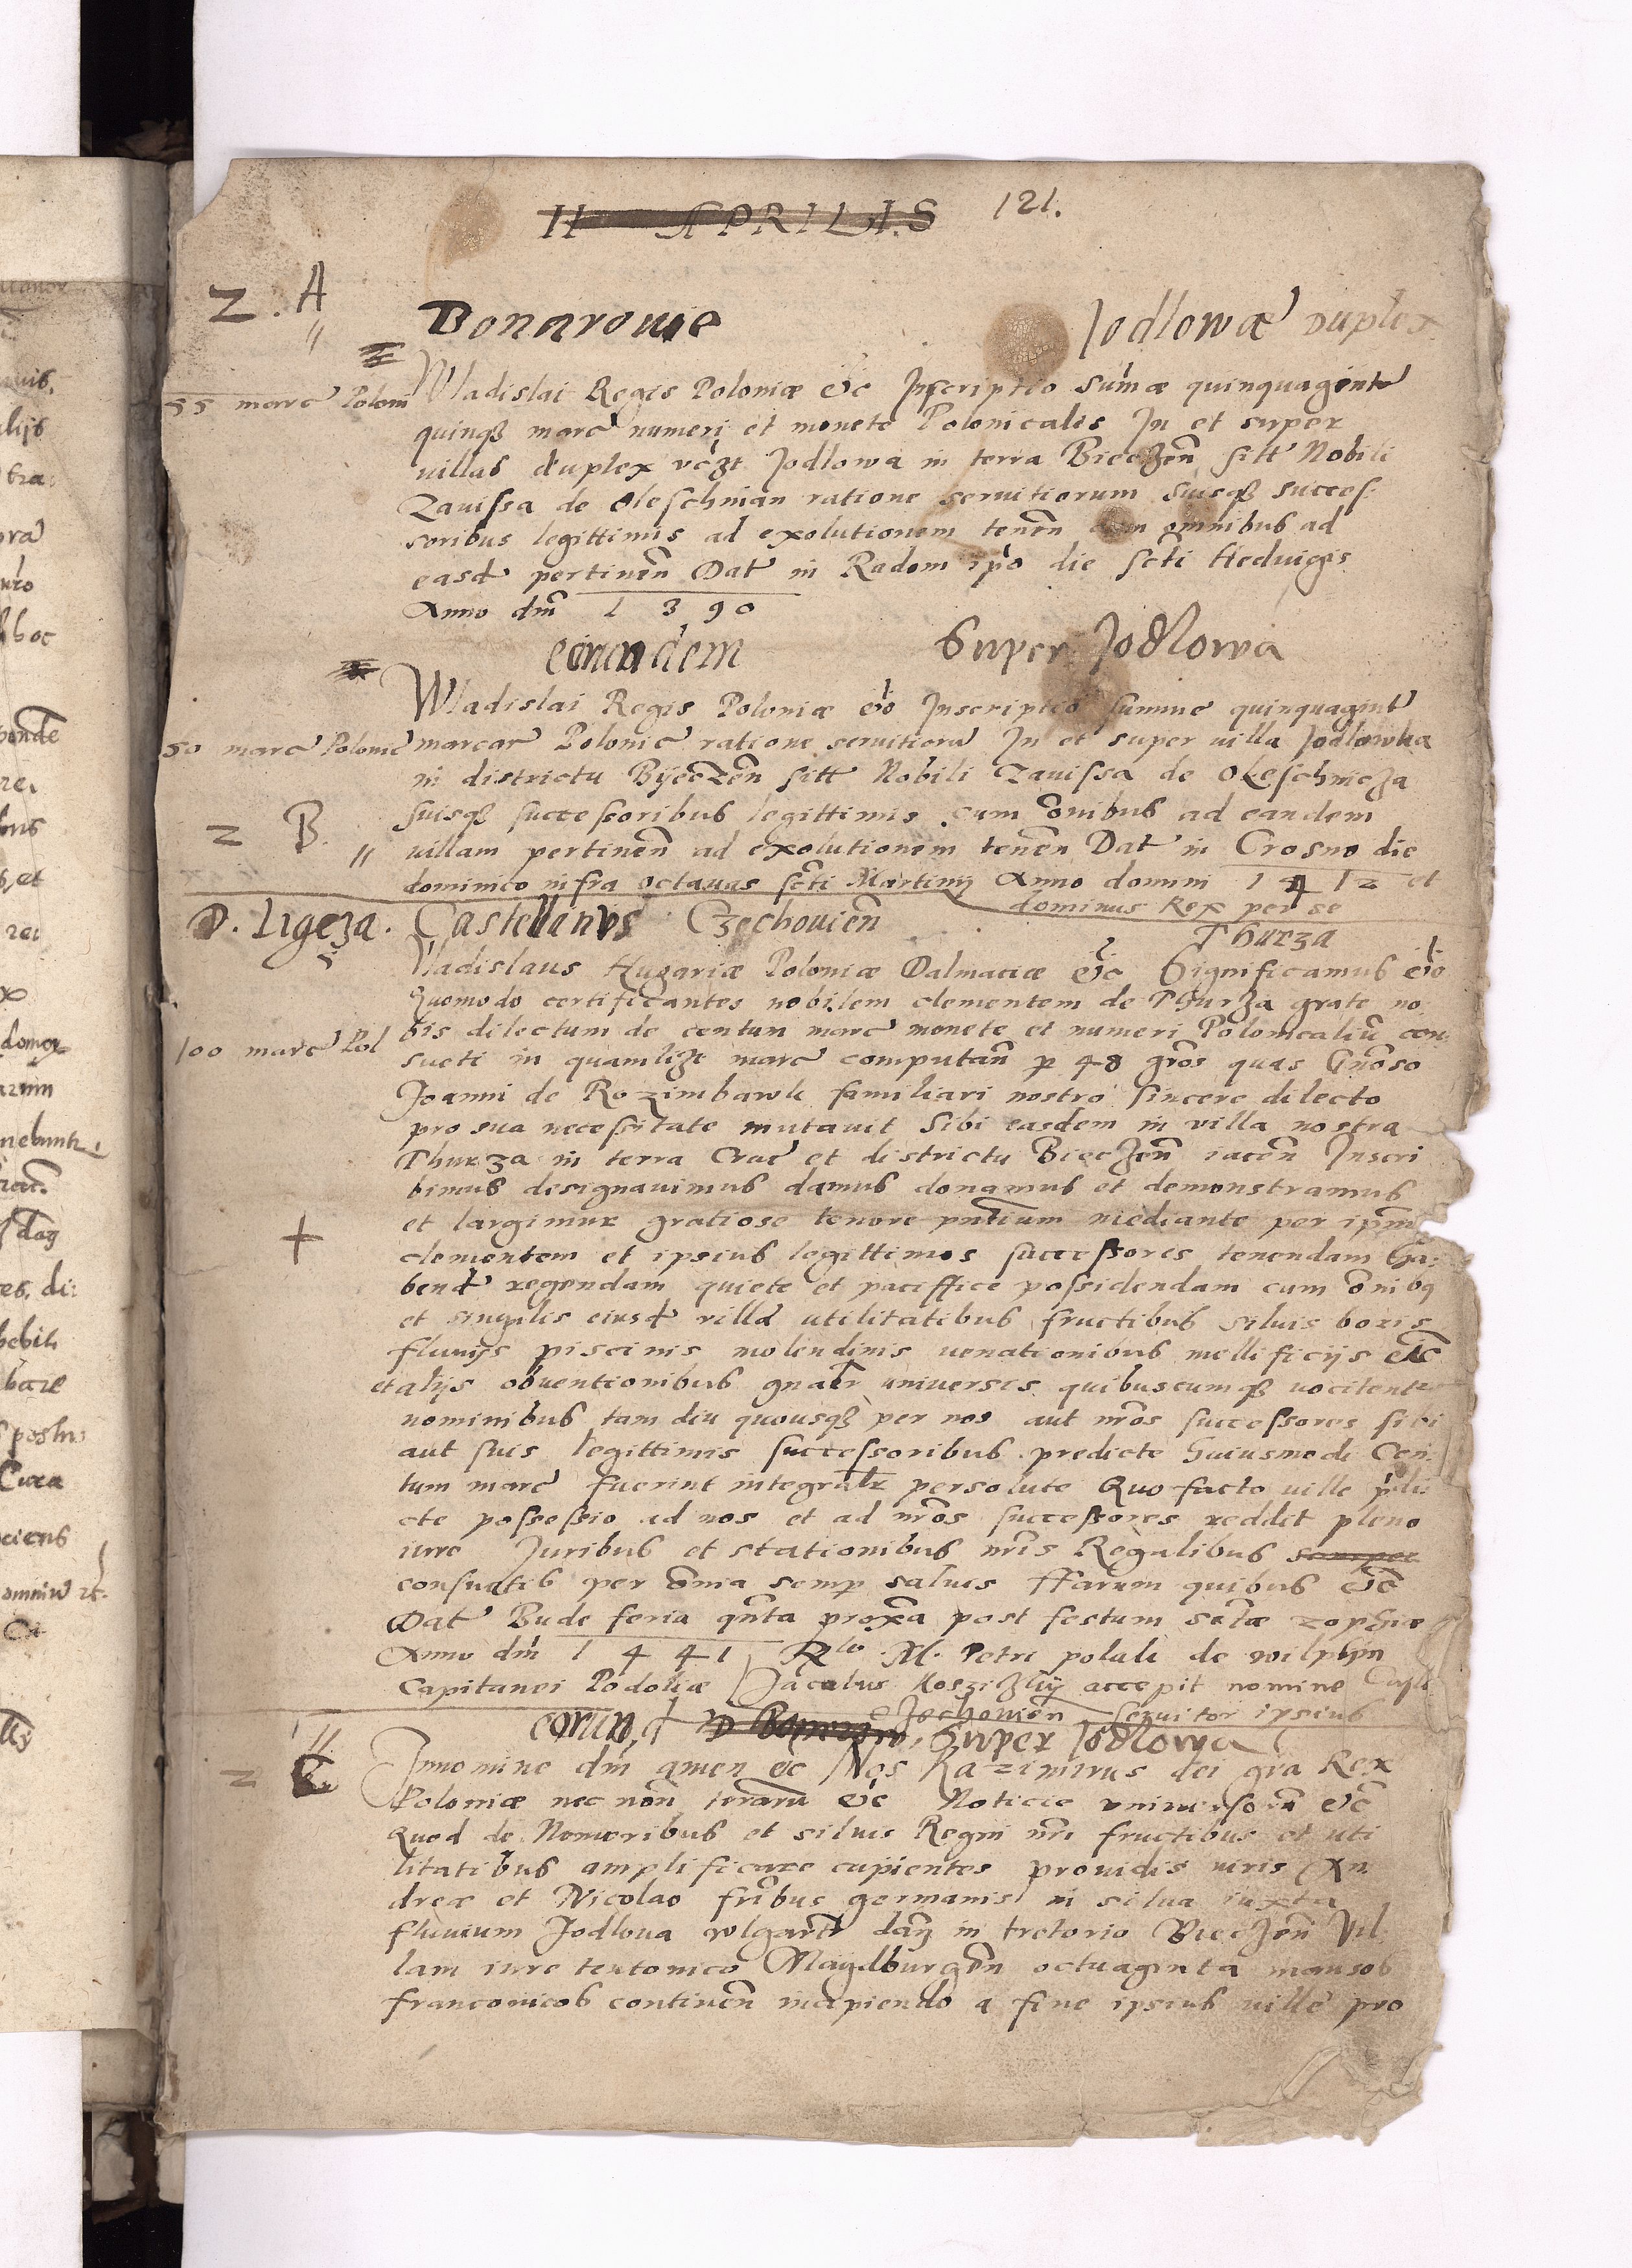 II APRILIS 121.
Z. A
Bonarowie Jodlowa duplex
55 marc Poloni Wladislai Regis Poloniæ etc Inscriptio sumæ quinquaginta
quinqȝ marc numeri et monete Polonicalis In et super
villas duplex vczt Jodlowa in terra Bieczen̄ sitt Nobili
Zavissa de Oleschnian ratione servitiorum suisqȝ succes:
soribus legittimis ad exolutionem tenen̄ cum omnibus ad
easd pertinen̄ Dat in Radom ipō die scti Heduigis
Anno dm̄ 1390
eorundem Super Jodlowa
Wladislai Regis Poloniæ etc Inscriptio summe quinquagint
50 marc Polonic marcar Polonic ratione servitioru In et super villa Jodlowka
in districtu Byeczen̄ sitt Nobili Zavissa de Oleschnicza
suisqȝ successoribus legittimis cum om̄nibus ad eandem
Z B. villam pertinen̄ ad exolutionem tenen̄ Dat in Crosno die
dominico infra octavas scti Martini Anno domini 1412 et
dominus Rex per se
D. Ligęza. Castellanus Czechovien̄ Thurza
Vladislaus Hugariæ Poloniæ Dalmaciæ etc Significamus etc
Quomodo certificantes nobilem clementem de Thurza grate no
bis dilectum de centum marc monete et numeri Polonicaliū con:
100 marc Pol sueti in quamlizt marc computan̄ p 48 gros quas Gn̄oso
Joanni de Rozimbark familiari nostro sincere dilecto
pro sua necessitate mutavit Sibi easdem in villa nostra
Thurza in terra Crac et districtu Bieczen̄ iacen̄ Inscri
bimus designavimus damus donamus et demonstramus
et largimur gratiose tenore pn̄tium mediante per ipm̄
clementem et ipsius legittimos successores tenendam ha:
bend regendam quiete et paciffice possidendam cum om̄nibq
et singulis eiusd villa utilitatibus fructibus silvis boris
fluvijs piscinis molendinis venationibus mellificijs etc
et alijs obventionibus gn̄alr universis quibuscumqȝ vocitent
nominibus tam diu quousqȝ per nos aut nr̄os successores sibi
aut suis legittimis successoribus predicte huiusmodi Cen
tum marc fuerint integralr persolute Quo facto ville pdi
cte possessio ad nos et ad nr̄os successores reddit pleno
iure Juribus et stationibus nr̄is Regalibus semper
consuetis per om̄nia semp salvis Harum quibus etc
Dat Bude feria qn̄ta prox̄a post festum sctæ zophiæ
Anno dm̄ 1441 Rlo M. Petri polali de
Capitanei Podoliæ Jacobus accepit nomine Casti
Czechovien̄ Servitor ipsius
eorund Super Jodlowa
Z C. Innomine dm̄ amen etc Nos Kazimirus dei gra Rex
Poloniæ nec non̄ terraru etc Noticie universoru etc
Quod de Nemoribus et silvis Regni nr̄i fructibus et uti
litatibus amplificare cupientes providis viris An
dreæ et Nicolao fr̄ibus germanis in silva iuxta
fluvium Jodlova vlgarit in tretorio Bieczen̄ Vil
lam iure teutonico Maydburgen̄ octuaginta mansos
franconicos continen̄ incipiendo a fine ipsius ville pro